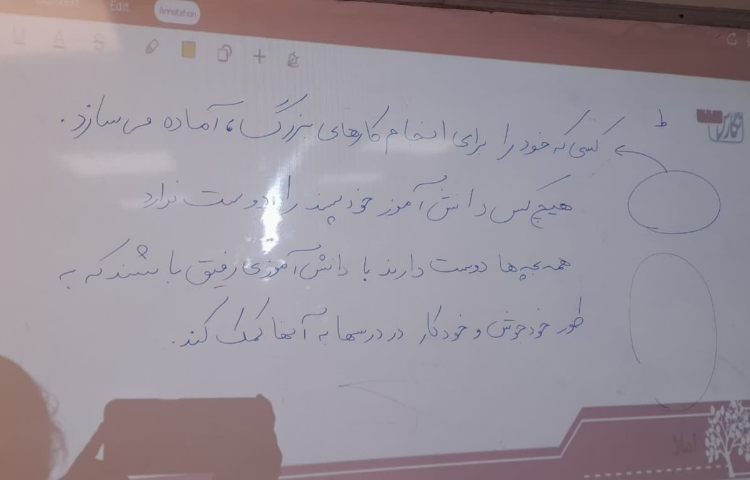 Edit
Annotation
کسی که خود را برای انجام کارهای بزرگ، آماده می‌سازد.
هیچ کس دانش آموز خودپسند را دوست ندارد
همه بچه ها دوست دارند با دانش آموزی رفیق باشند که به
طور خودجوش و خودکار در درسها به آنها کمک کند.
املا